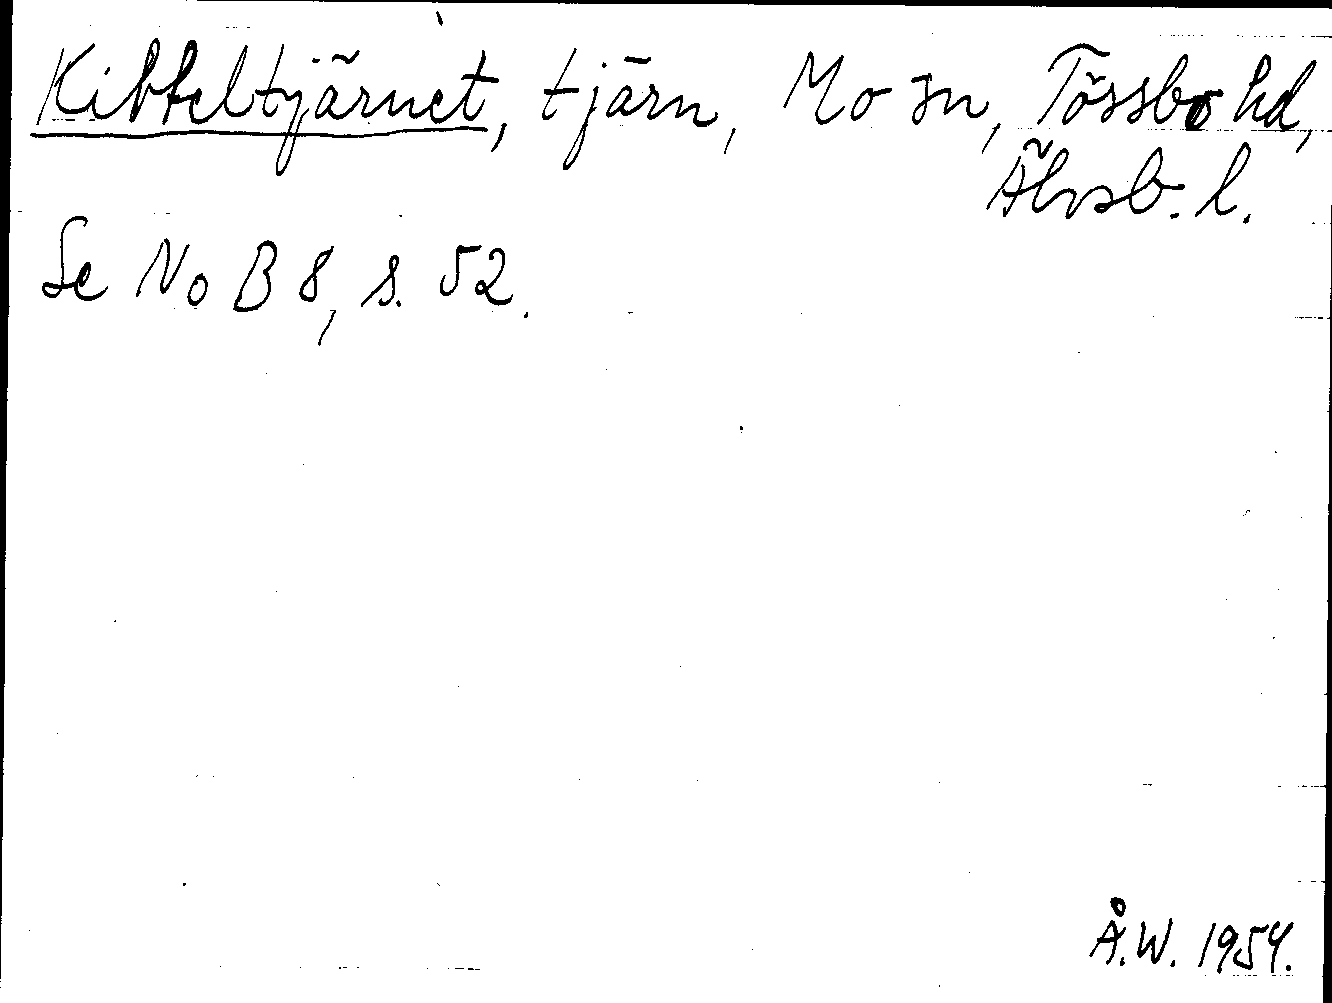 Kibteltjärnet, tjärn, Mo sn, Tössbo hd,
Älvsb. l.
Se NoB 8, s. 52.
Å.W. 1954.